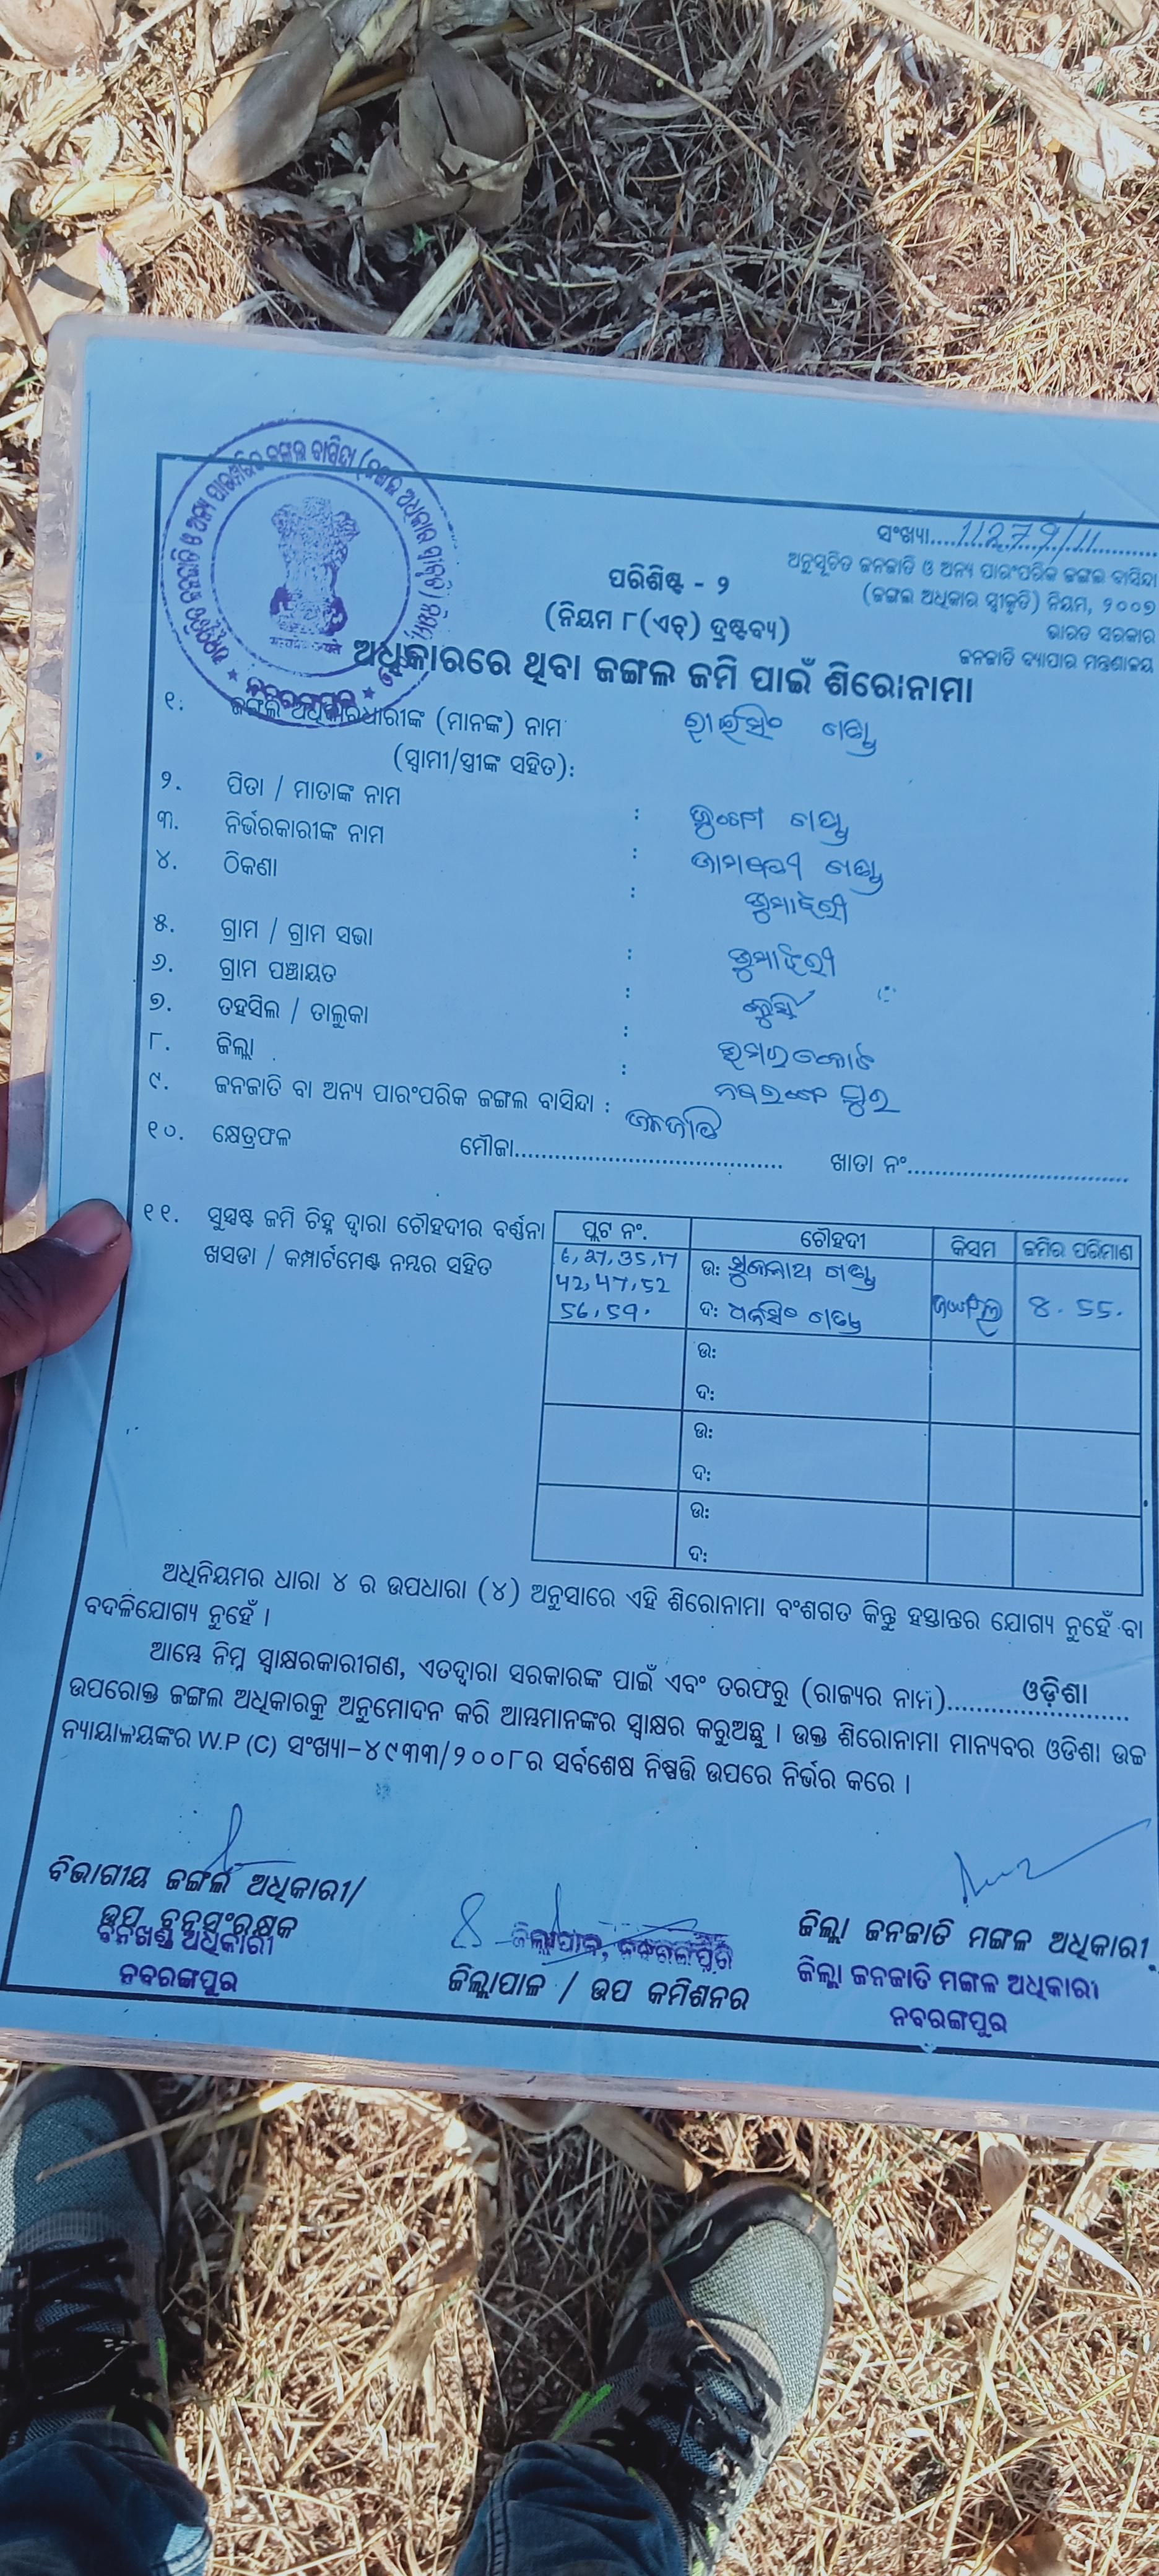 ସଂଖ୍ୟା....11279/11
ଅନୁସୂଚିତ ଜନଜାତି ଓ ଅନ୍ୟ ପାରଂପରିକ ଜଙ୍ଗଲ ବାସିନ୍ଦା
(ଜଙ୍ଗଲ ଅଧିକାର ସ୍ୱୀକୃତି) ନିୟମ, ୨୦୦୭
ଭାରତ ସରକାର
ଜନଜାତି ବ୍ୟାପାର ମନ୍ତ୍ରଣାଳୟ
ପରିଶିଷ୍ଟ - ୨
(ନିୟମ ୮(ଏଚ୍) ଦ୍ରଷ୍ଟବ୍ୟ)
ଅଧିକାରରେ ଥିବା ଜଙ୍ଗଲ ଜମି ପାଇଁ ଶିରୋନାମା
୧. ଜଙ୍ଗଲ ଅଧିକାରଧାରୀଙ୍କ (ମାନଙ୍କ) ନାମ ରାଇସିଂ ଗଣ୍ଡ
(ସ୍ୱାମୀ/ସ୍ତ୍ରୀଙ୍କ ସହିତ):
୨. ପିତା / ମାତାଙ୍କ ନାମ : ଗଣ୍ଡ
୩. ନିର୍ଭରକାରୀଙ୍କ ନାମ : ଗଣ୍ଡ
୪. ଠିକଣା :
୫. ଗ୍ରାମ / ଗ୍ରାମ ସଭା :
୬. ଗ୍ରାମ ପଞ୍ଚାୟତ :
୭. ତହସିଲ / ତାଲୁକା : ଉମରକୋଟ
୮. ଜିଲ୍ଲା : ନବରଙ୍ଗପୁର
୯. ଜନଜାତି ବା ଅନ୍ୟ ପାରଂପରିକ ଜଙ୍ଗଲ ବାସିନ୍ଦା : ଜନଜାତି
୧୦. କ୍ଷେତ୍ରଫଳ ମୌଜା........ ଖାତା ନଂ........
୧୧. ସୁସ୍ପଷ୍ଟ ଜମି ଚିହ୍ନ ଦ୍ୱାରା ଚୌହଦୀର ବର୍ଣ୍ଣନା
ଖସଡା / କମ୍ପାର୍ଟମେଣ୍ଟ ନମ୍ବର ସହିତ
ପ୍ଲଟ ନଂ. ଚୌହଦୀ କିସମ ଜମିର ପରିମାଣ
6, 27, 35, 17
42, 47, 52
56, 59.
ଉ: ଗଣ୍ଡ
ଦ: ଧନସିଂ ଗଣ୍ଡ
ଜଙ୍ଗଲ ୪.୫୫.
ଉ:
ଦ:
ଉ:
ଦ:
ଉ:
ଦ:
ଅଧିନିୟମର ଧାରା ୪ ର ଉପଧାରା (୪) ଅନୁସାରେ ଏହି ଶିରୋନାମା ବଂଶଗତ କିନ୍ତୁ ହସ୍ତାନ୍ତର ଯୋଗ୍ୟ ନୁହେଁ ବା
ବଦଳିଯୋଗ୍ୟ ନୁହେଁ ।
ଆମ୍ଭେ ନିମ୍ନ ସ୍ୱାକ୍ଷରକାରୀଗଣ, ଏତଦ୍ୱାରା ସରକାରଙ୍କ ପାଇଁ ଏବଂ ତରଫରୁ (ରାଜ୍ୟର ନାମ)........ଓଡ଼ିଶା
ଉପରୋକ୍ତ ଜଙ୍ଗଲ ଅଧିକାରକୁ ଅନୁମୋଦନ କରି ଆମ୍ଭମାନଙ୍କର ସ୍ୱାକ୍ଷର କରୁଅଛୁ । ଉକ୍ତ ଶିରୋନାମା ମାନ୍ୟବର ଓଡିଶା ଉଚ୍ଚ
ନ୍ୟାୟାଳୟଙ୍କର W.P (C) ସଂଖ୍ୟା-୪୯୩୩/୨୦୦୮ର ସର୍ବଶେଷ ନିଷ୍ପତ୍ତି ଉପରେ ନିର୍ଭର କରେ ।
ବିଭାଗୀୟ ଜଙ୍ଗଲ ଅଧିକାରୀ/
ଉପ ବନସଂରକ୍ଷକ
ବନଖଣ୍ଡ ଅଧିକାରୀ
ନବରଙ୍ଗପୁର
ଜିଲ୍ଲାପାଳ, ନବରଙ୍ଗପୁର
ଜିଲ୍ଲାପାଳ / ଉପ କମିଶନର
ଜିଲ୍ଲା ଜନଜାତି ମଙ୍ଗଳ ଅଧିକାରୀ
ଜିଲ୍ଲା ଜନଜାତି ମଙ୍ଗଳ ଅଧିକାରୀ
ନବରଙ୍ଗପୁର